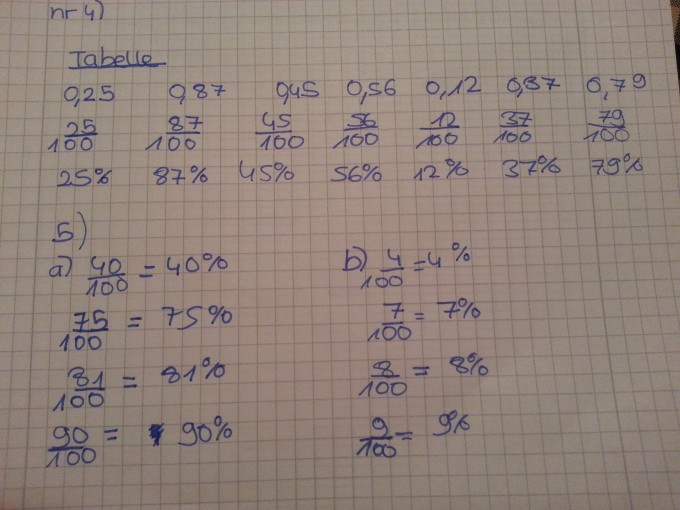 nr 4)
Tabelle
0,25 0,87 0,45 0,56 0,12 0,37 0,79
25/100 87/100 45/100 56/100 12/100 37/100 79/100
25% 87% 45% 56% 12% 37% 79%
5)
a) 40/100 = 40% b) 4/100 = 4%
75/100 = 75% 7/100 = 7%
81/100 = 81% 8/100 = 8%
90/100 = 90% 9/100 = 9%